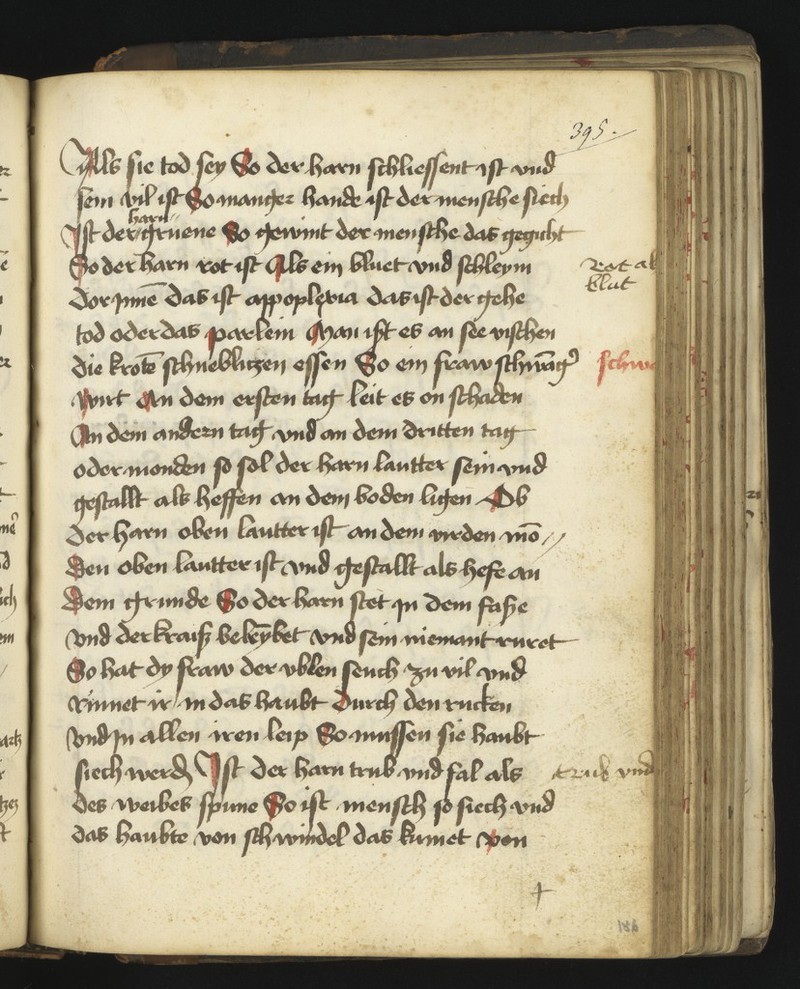 395.
Als sie tod sey So der harn schliessent ist vnd
sein vil ist So manger hande ist der mensche siech
harn
Ist der gruene So gewint der mensche das gegicht
So der harn rot ist Als ein bluet vnd schleym
rot al
blut
dor Inne das ist appoplexia das ist der gehe
tod oder das parlein Man ißt es an see vischen
die krotē schneblitzen essen So ein fraw schwāg
schwa
wirt An dem ersten tag leit es on schaden
An dem andern tag vnd an dem dritten tag
oder monden so sol der harn lautter sein vnd
gestallt als heffen an dem boden ligen Ob
der harn oben lautter ist an dem virden mō
den oben lautter ist vnd gestallt als hefe an
dem grunde So der harn stet in dem faße
vnd der kraiß beleybet vnd sein niemant ruret
So hat dy fraw der vblen seuch zu vil vnd
Rinnet ir in das haubt durch den rucken
vnd in allen iren leip So mussen sie haubt
siech werdē Ist der harn trub vnd fal als
trub vnd
des weibes spune So ist mensch so siech vnd
das haubte von schwindel das kumet von
186